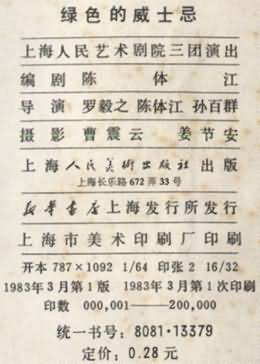 绿色的威士忌
上海人民艺术剧院三团演出
编剧 陈体江
导演 罗毅之 陈体江 孙百群
摄影 曹震云 姜节安
上海人民美術出版社 出版
上海长乐路672弄33号
新华書店上海发行所发行
上海市美术印刷厂印刷
开本 787×1092 1/64 印张 2 16/32
1983年3月第1版 1983年3月第1次印刷
印数 000,001——200,000
统一书号：8081·13379
定价：0.28 元